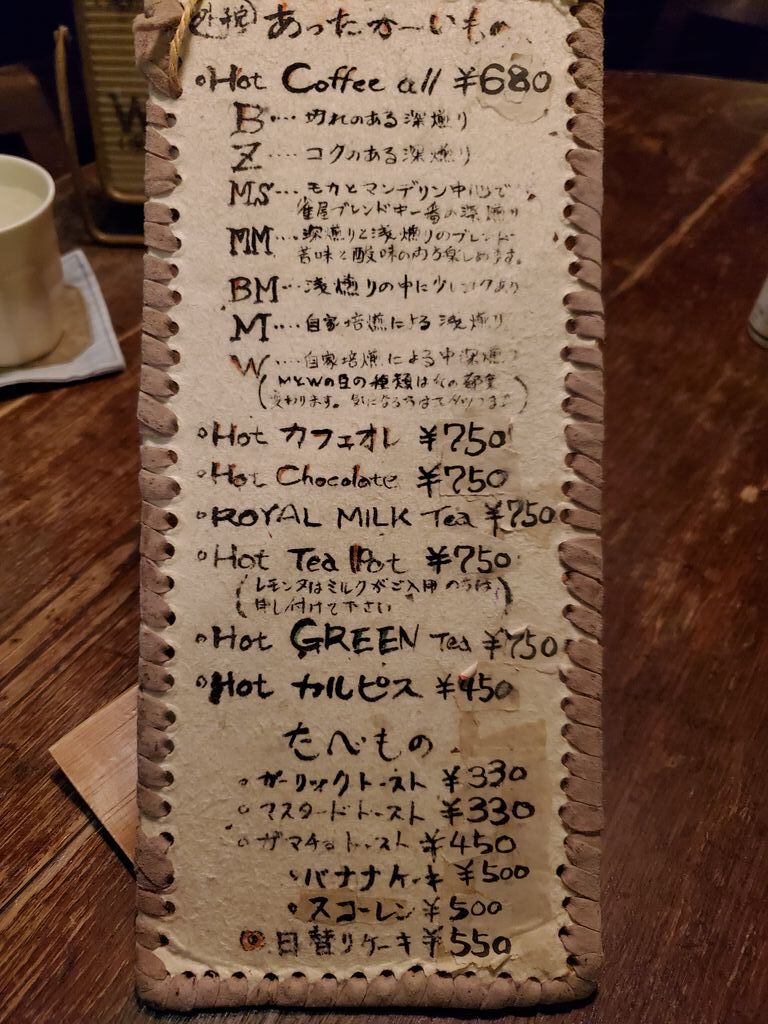 外税 あったか〜いもの
Hot Coffee all ¥680
B‥‥切れのある深煎り
Z‥‥コクのある深煎り
MS‥‥モカとマンデリン中心で
雀屋ブレンド中一番の深煎り
MM‥‥深煎りと浅煎りのブレンド
苦味と酸味の両方楽しめます。
BM‥‥浅煎りの中に少しコクあり
M‥‥自家焙煎による浅煎り
W‥‥自家焙煎による中深煎り
(MとWの豆の種類はその都度
変わります。気になる方は
Hot カフェオレ ¥750
Hot Chocolate ¥750
ROYAL MILK Tea ¥750
Hot Tea Pot ¥750
(レモン又はミルクがご入用の方は
申し付けて下さい)
Hot GREEN Tea ¥750
Hot カルピス ¥450
たべもの
ガーリックトースト ¥330
マスタードトースト ¥330
ザマチョトースト ¥450
バナナケーキ ¥500
スコーレン ¥500
日替りケーキ ¥550
W